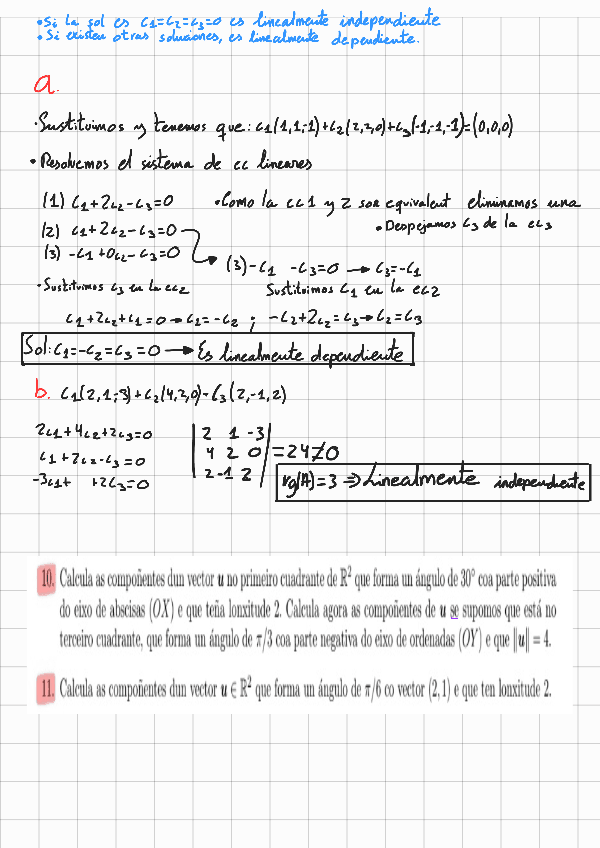 • Si la sol es C1=C2=C3=0 es linealmente independiente
• Si existen otras soluciones, es linealmente dependiente.
a.
• Sustituimos y tenemos que: C1(1,1,-1)+C2(2,2,0)+C3(-1,-1,-1)=(0,0,0)
• Resolvemos el sistema de ec lineares
(1) C1+2C2-C3=0 • Como la ec 1 y 2 son equivalent eliminamos una
(2) C1+2C2-C3=0 • Despejamos C3 de la ec3
(3) -C1+0C2-C3=0
(3) -C1 -C3=0 → C3=-C1
• Sustituimos C3 en la ec2 Sustituimos C1 en la ec2
C1+2C2+C1=0 → C1=-C2 ; -C2+2C2=C3 → C2=C3
Sol: C1=-C2=C3=0 → Es linealmente dependiente
b. C1(2,1,-3)+C2(4,2,0)-C3(2,-1,2)
2C1+4C2+2C3=0
C1+2C2-C3=0
-3C1+ +2C3=0
| 2 1 -3 |
| 4 2 0 | =24≠0
| 2 -1 2 |
rg(A)=3 ⇒ Linealmente independiente
10. Calcula as compoñentes dun vector u no primeiro cuadrante de ℝ² que forma un ángulo de 30° coa parte positiva
do eixo de abscisas (OX) e que teña lonxitude 2. Calcula agora as compoñentes de u se supomos que está no
terceiro cuadrante, que forma un ángulo de π/3 coa parte negativa do eixo de ordenadas (OY) e que ‖u‖ = 4.
11. Calcula as compoñentes dun vector u ∈ ℝ² que forma un ángulo de π/6 co vector (2,1) e que ten lonxitude 2.